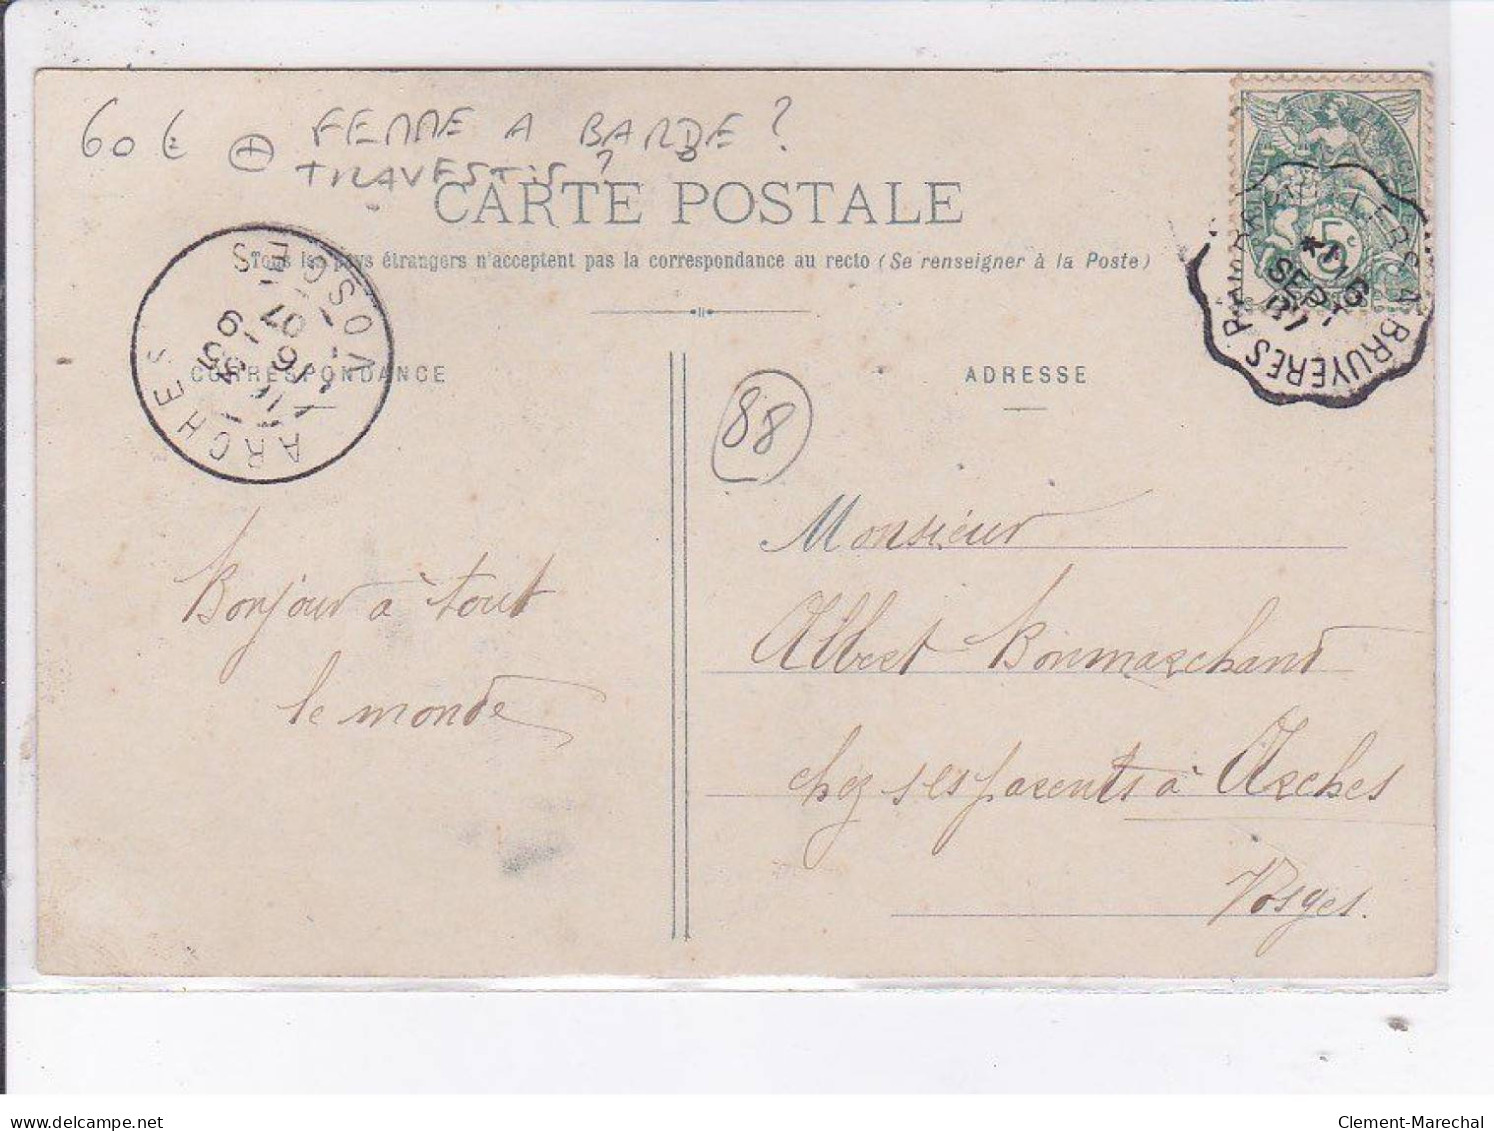 60 € + FEMME A BARBE ?
TRAVESTIS ?
CARTE POSTALE
Tous les pays étrangers n'acceptent pas la correspondance au recto (Se renseigner à la Poste)
CORRESPONDANCE
ADRESSE
ARCHES
VOSGES
16 - 9
07
5c
BRUYERES
16
SEPT
07
88
Bonjour à tout
le monde
Monsieur
Albert Bonmarchand
chez ses parents à Arches
Vosges.
delcampe.net
Clement-Marechal